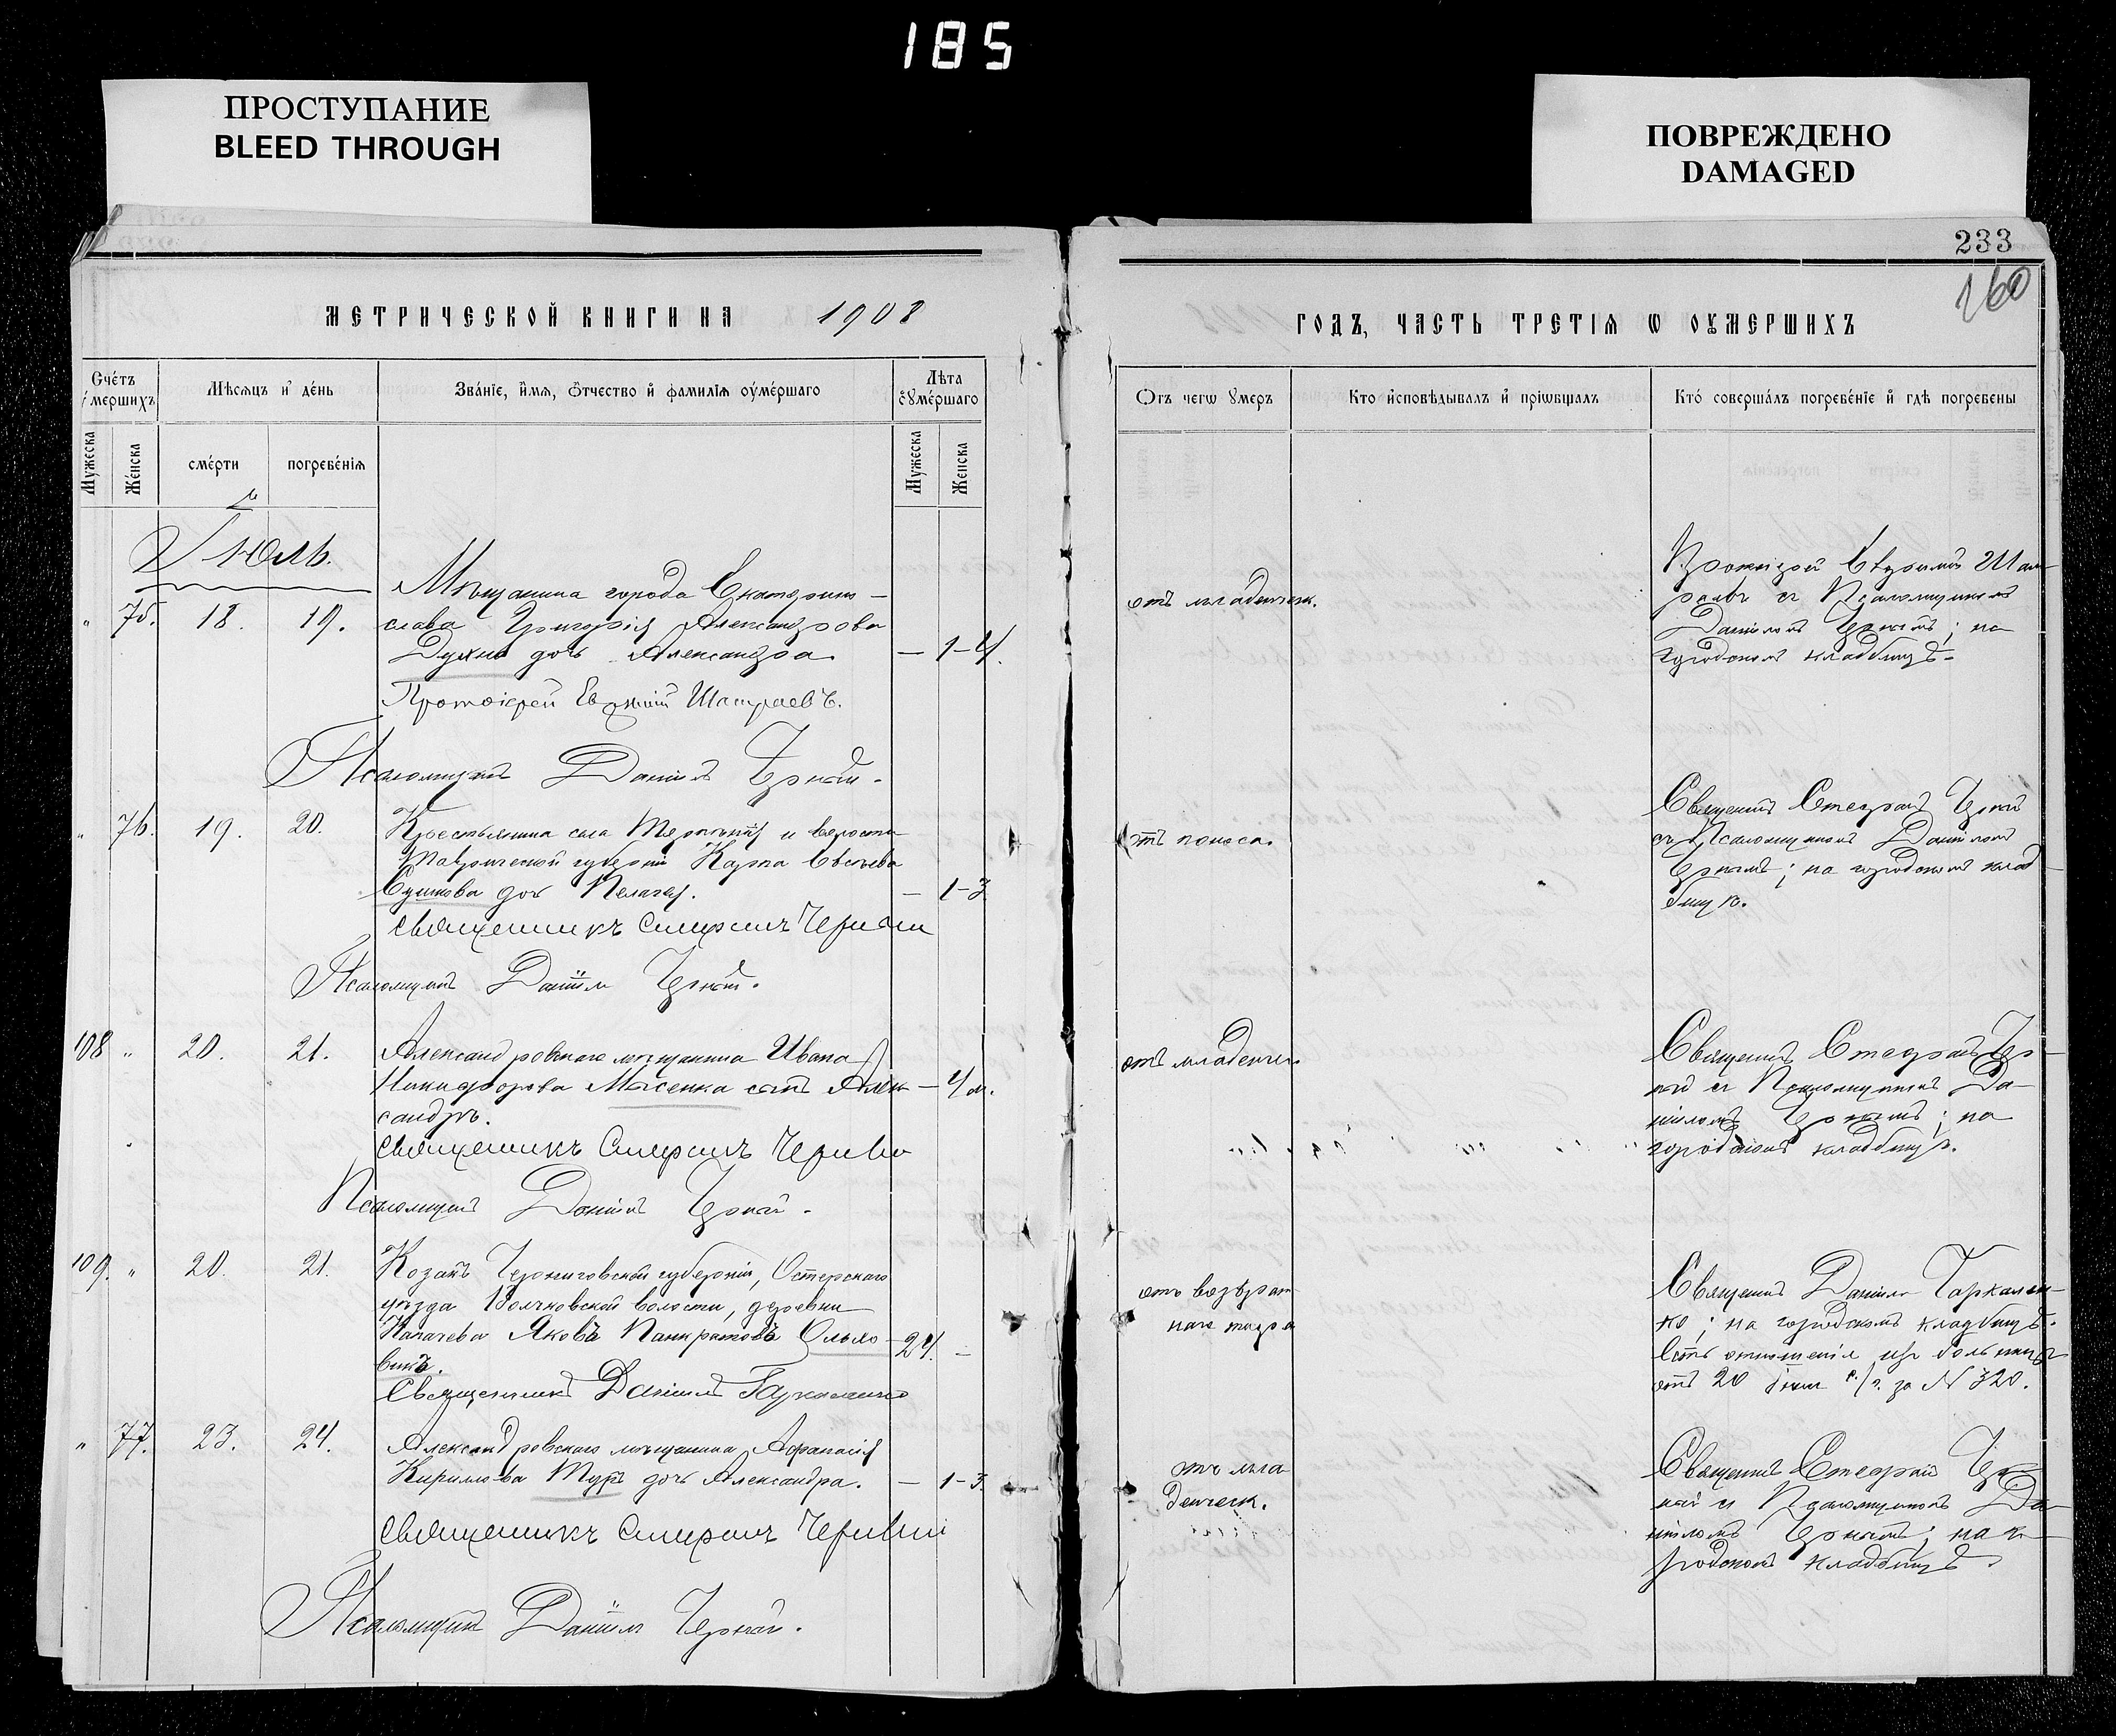 185
ПРОСТУПАНИЕ
BLEED THROUGH
ПОВРЕЖДЕНО
DAMAGED
233
160
МЕТРИЧЕСКОЙ КНИГИ НА 1908
ГОДЪ, ЧАСТЬ ТРЕТІЯ Ѡ ОУМЕРШИХЪ
Счéтъ умершихъ
Мѣсяцъ и дéнь
Звáніе, имя, ѻтчество и фамилія оумéршаго
Лѣта оумéршаго
Мужеска
Жéнска
смéрти
погребéнія
Мужеска
Женска
Отъ чегѡ умеръ
Кто исповѣдывалъ и пріѡбщалъ
Ктó совершáлъ погребéніе и гдѣ погребены
Іюль.
" 75. 18. 19.
Мѣщанина города Екатерино-
слава Григорія Александрова
Духно дочь Александра. — 1-4.
Протоіерей Евѳимій
Псаломщикъ Даніилъ Черный.
отъ младенческ.
Протоіерей Евѳимій
съ Псаломщикомъ
Даніиломъ Чернымъ; на
городскомъ кладбищѣ.
" 76. 19. 20.
Крестьянина села и волости
Таврической губерніи Карпа Евсѣева
Сушкова дочь Пелагея. — 1-3
Священникъ Стефанъ Черный
Псаломщикъ Даніилъ Черный.
отъ поноса.
Священникъ Стефанъ Черный
съ Псаломщикомъ Даніиломъ
Чернымъ; на городскомъ клад-
бищѣ.
108 " 20. 21.
Александровскаго мѣщанина Ивана
Никифорова Мысенка сынъ Алек- — 4 м.
сандръ.
Священникъ Стефанъ Черный
Псаломщикъ Даніилъ Черный.
отъ младенческ.
Священникъ Стефанъ Чер-
ный съ Псаломщикомъ Да-
ніиломъ Чернымъ; на
городскомъ кладбищѣ.
109. " 20. 21.
Козакъ Черниговской губерніи, Остерскаго
уѣзда волости, деревни
Яковъ Панкратовъ Ольхо- 24. -
викъ.
Священникъ Даніилъ Гаркаленко
отъ возврат-
наго тифа
Священникъ Даніилъ Гаркален-
ко; на городскомъ кладбищѣ.
Есть отношеніе изъ больницы
отъ 20 Іюля с./г. за № 320.
" 77. 23. 24.
Александровскаго мѣщанина Аѳанасія
Кириллова Туръ дочь Александра. — 1-3.
Священникъ Стефанъ Черный
Псаломщикъ Даніилъ Черный.
отъ мла-
денческ.
Священникъ Стефанъ Чер-
ный съ Псаломщикомъ Да-
ніиломъ Чернымъ; на го-
родскомъ кладбищѣ.